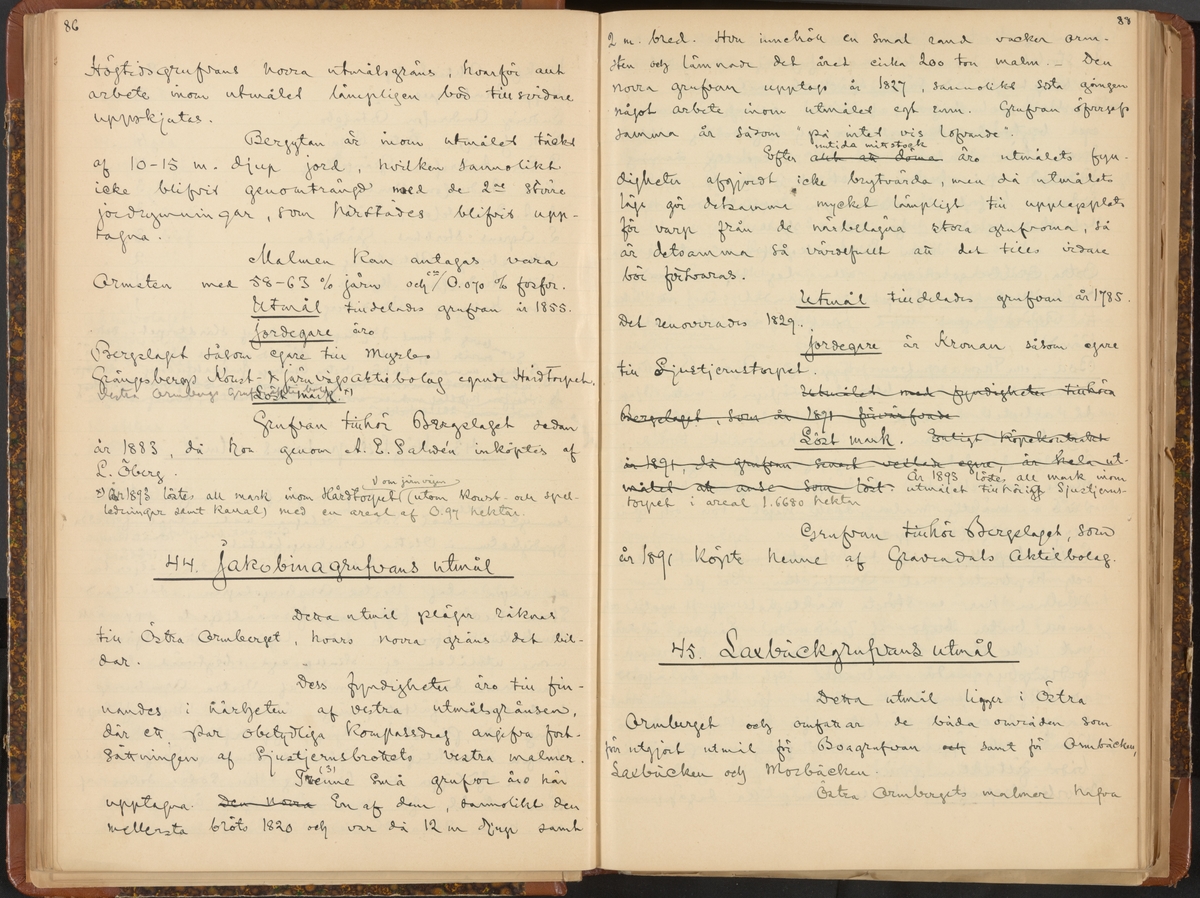 86
Högtidsgrufvans norra utmålsgräns, hvarför allt
arbete inom utmålet lämpligen bör tillsvidare
uppskjutas.
Bergytan är inom utmålet täckt
af 10-15 m. djup jord, hvilken sannolikt
icke blifvit genomträngd med de 2ne större
jordrymningar, som härstädes blifvit upp-
tagna.
Malmen kan antagas vara
Ormsten med 58-63 % järn och ca/ 0.070 % fosfor.
Utmål tilldelades grufvan år 1855.
Jordegare äro
Bergslaget såsom egare till Myrbo
Grängesbergs Konst- & Järnvägsaktiebolag egande Hårdtorpet.
Östra Ormbergs
Löst mark. *)
Grufvan tillhör Bergslaget sedan
år 1883, då hon genom A. E. Salwén inköptes af
L. Öberg.
*) År 1893 löstes all mark inom Hårdtorpet (utom Konst- och spel-
V om järnvägen
ledningar samt Kanal) med en areal af 0.97 hektar.
44. Jakobinagrufvans utmål
Detta utmål plägar räknas
till Östra Ormberget, hvars norra gräns det bil-
dar.
Dess fyndigheter äro till fin-
nandes i närheten af vestra utmålsgränsen,
där ett par obetydliga Kompassdrag angifva fort-
sättningen af Ljustjernsbrottets vestra malmer.
Trenne (3) små grufvor äro här
upptagna. Den norra En af dem, sannolikt den
mellersta bröts 1820 och var då 12 m djup samt
83
2 m. bred. Hon innehöll en smal rand vacker orm-
sten och lämnade det året cirka 200 ton malm. - Den
norra grufvan upptogs år 1827, sannolikt sista gången
något arbete inom utmålet egt rum. Grufvan öfvergafs
samma år såsom "på intet vis lofvande".
Efter allt att döma äro utmålets fyn-
digheter afgjordt icke brytvärda, men då utmålets
läge gör detsamma mycket lämpligt till upplagsplats
för varp från de närbelägna stora grufvorna, så
är detsamma så värdefullt att det tills vidare
bör förvaras.
Utmål tilldelades grufvan år 1785.
Det renoverades 1829.
Jordegare är Kronan såsom egare
till Ljustjernstorpet.
Utmålet med fyndigheter tillhör
Bergslaget, som år 1891 förvärfvade
Löst mark. Enligt Köpekontrakt
år 1891, då grufvan senast vexlade egare, är hela ut-
målet att anse som löst. År 1893 löstes all mark inom
utmålet tillhörig Ljustjerns-
torpet i areal 1.6680 hektar
Grufvan tillhör Bergslaget, som
år 1891 köpte henne af Gravendals Aktiebolag.
45. Laxbäckgrufvans utmål
Detta utmål ligger i Östra
Ormberget och omfattar de båda områden som
förr utgjort utmål för Boagrufvan och samt för Ormbäcken,
Laxbäcken och Morbäcken.
Östra Ormbergets malmer hafva